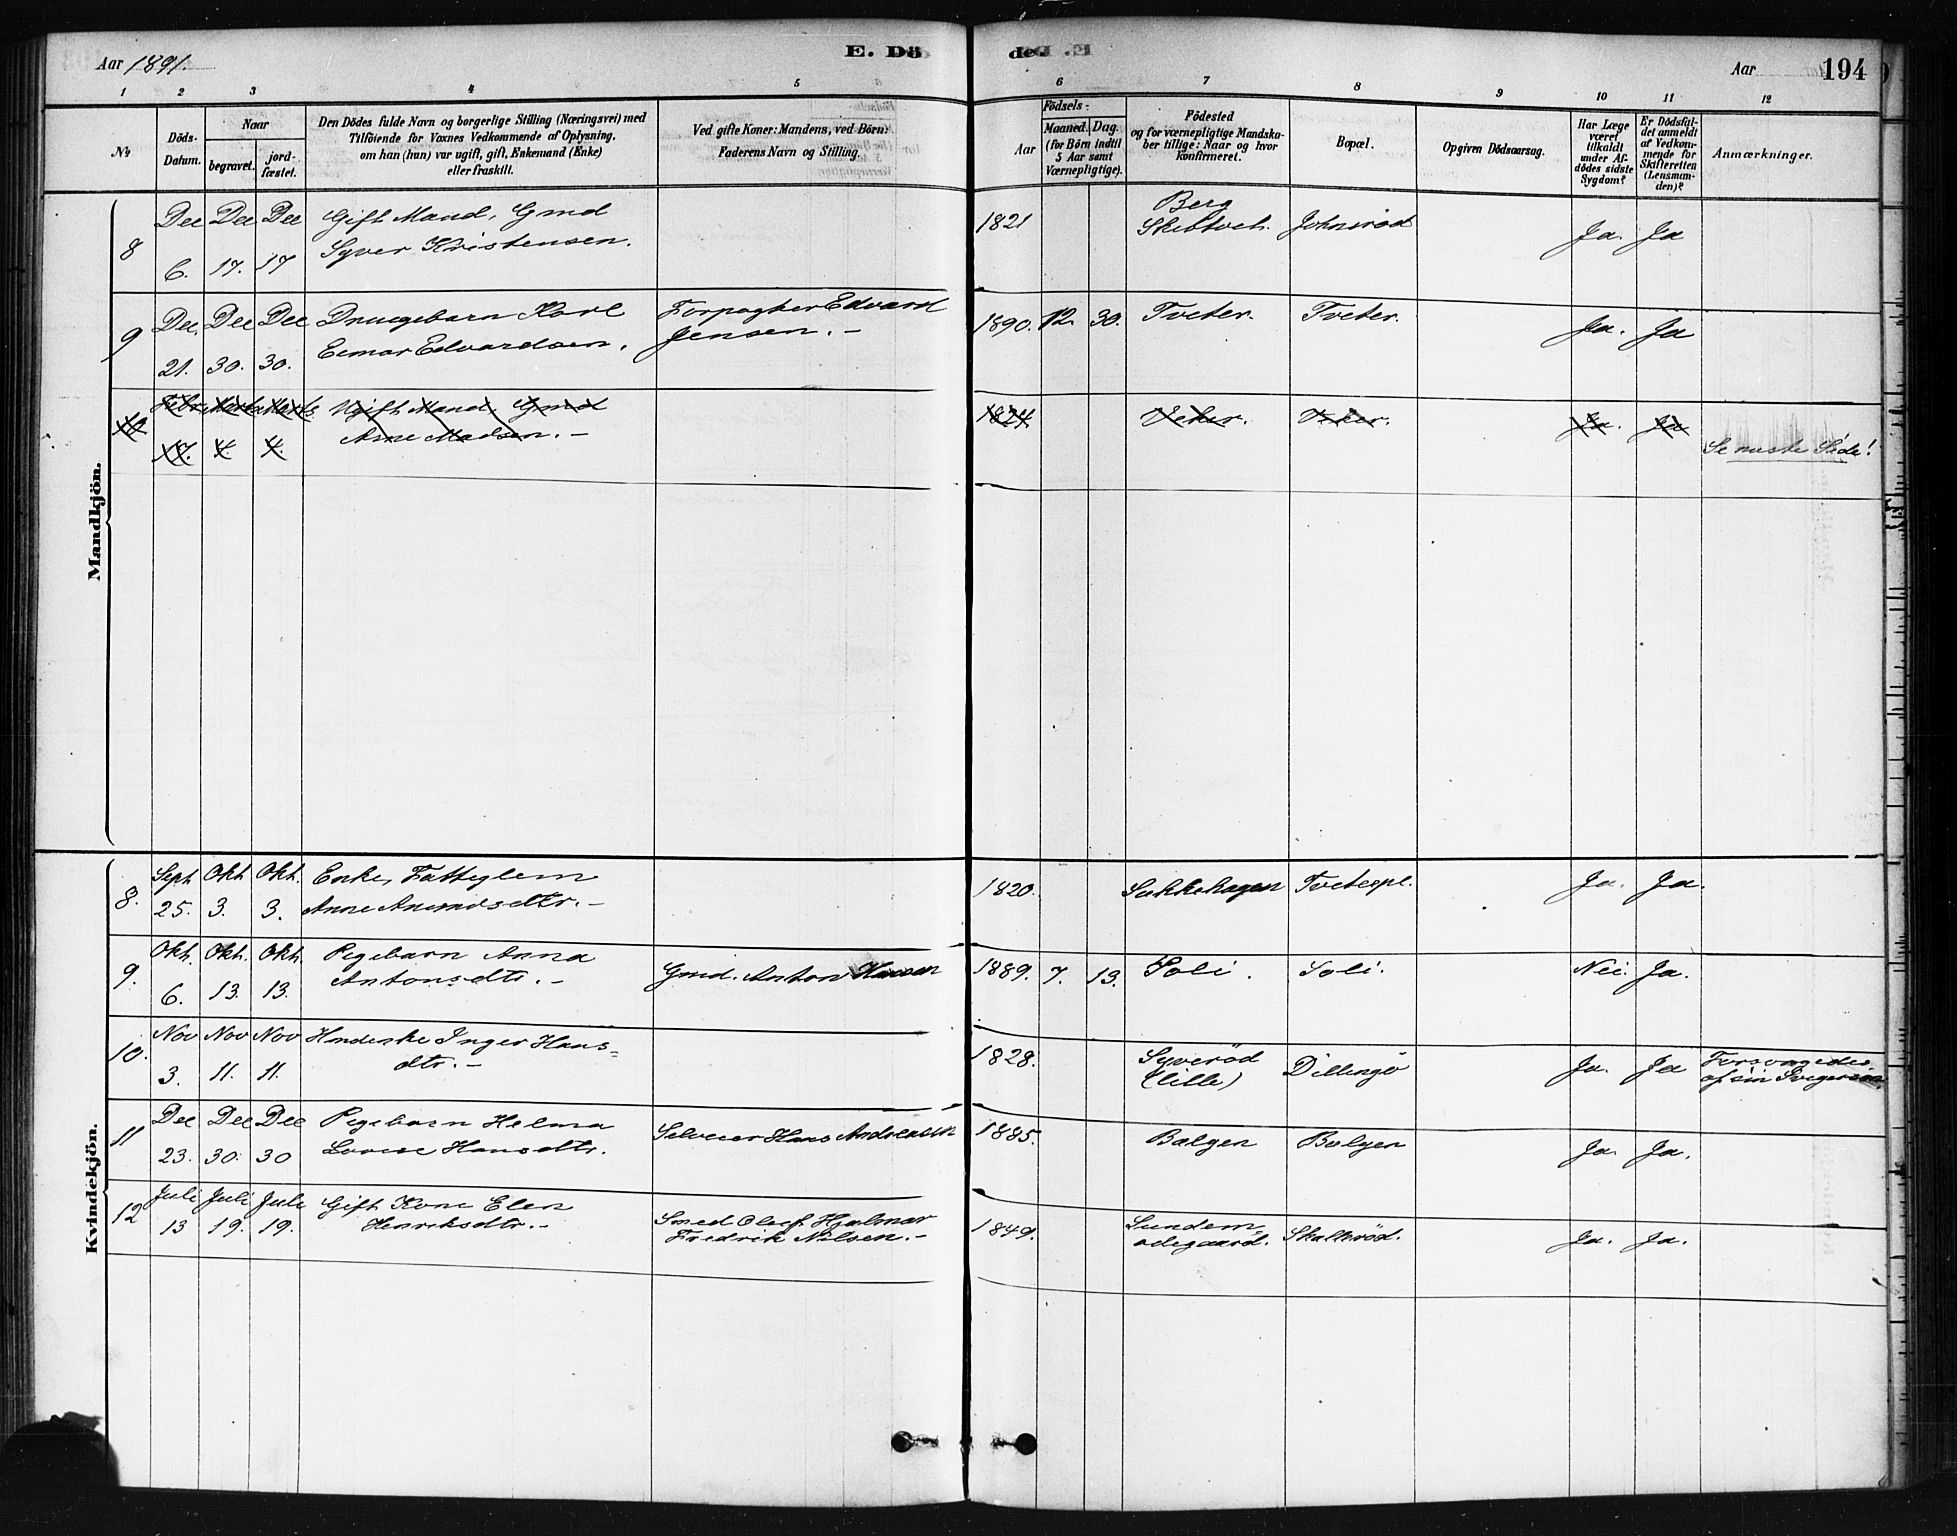 Aar 1891.
E. Dö
de.
Aar
194
1 2 3 4 5 6 7 8 9 10 11 12
№
Döds-
Datum.
Naar
begravet.
jord-
fæstet.
Den Dödes fulde Navn og borgerlige Stilling (Næringsvei) med
Tilföiende for Voxnes Vedkommende af Oplysning,
om han (hun) var ugift, gift, Enkemand (Enke)
eller fraskilt.
Ved gifte Koner: Mandens, ved Börn:
Faderens Navn og Stilling.
Födsels-
Aar
Maaned.
Dag.
(for Börn indtil
5 Aar samt
Værnepligtige).
Födested
og for værnepligtige Mandska-
ber tillige: Naar og hvor
konfirmeret.
Bopæl.
Opgiven Dödsaarsag.
Har Læge
været
tilkaldt
under Af-
dödes sidste
Sygdom?
Er Dödsfal-
det anmeldt
af Vedkom-
mende for
Skifteretten
(Lensman-
den)?
Anmærkninger.
Mandkjön.
8 Dec 6. Dec 17. Dec 17
Gift Mand, Gmd
Syver Kristensen.
1821
Berg
Johnsröd
Ja. Ja
9 Dec. 21. Dec 30. Dec 30.
Drengebarn Karl
Einar Edvardsen.
Forpagter Edvard
Jensen. —
1890. 12. 30. Tveter. Tveter. Ja. Ja
10 Febr. 17. Marts 4. Marts 4.
Ugift Mand, Gmd
Arne Madsen. —
1824
Ja. Ja
Se neste Side!
Kvindekjön.
8. Sept 25. Okt 3. Okt. 3.
Enke, Fattiglem
Anne Amundsdtr. —
1820. Sukkehagen Tvetespl. Ja. Ja.
9. Okt. 6. Okt. 13. Okt. 13.
Pigebarn Anna
Antonsdtr. —
Gmd. Anton Hansen
1889. 7. 13. Soli. Soli. Nei. Ja.
10. Nov 3. Nov 11. Nov 11.
Inger Hans=
dtr. —
1828.
Syveröd
(lille)
Dillingö
Ja. Ja
Forsörgedes
af sin Svigersøn
11 Dec 23. Dec 30. Dec 30
Pigebarn Helma
Lovise Hansdtr.
Selveier Hans Andreassen
1885. Bølgen Bølgen Ja. Ja.
12 Juli 13 Juli 19. Juli 19.
Gift Kone Elen
Henriksdtr. —
Smed Oluf Hjalmar
Fredrik Nilsen. —
1849.
Sundem
ødegaard.
Skalleröd.
Ja. Ja.